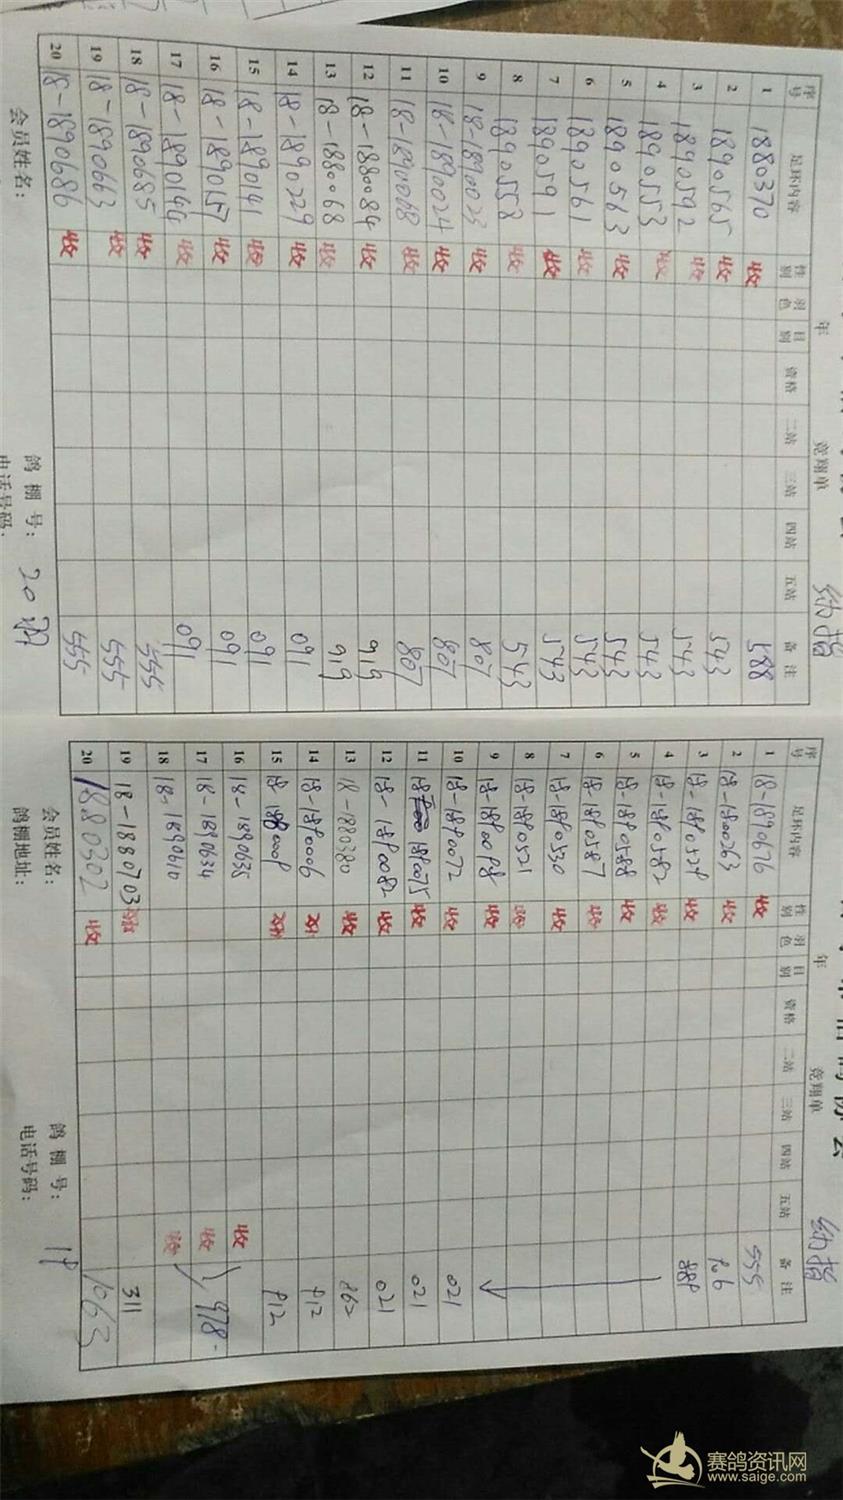 年 竞翔单
序号 足环内容 性别 羽色 目别 资格 二站 三站 四站 五站 备注
1 1880370 收 588
2 1890565 收 543
3 1890592 收 543
4 1890553 收 543
5 1890563 收 543
6 1890561 收 543
7 1890591 收 543
8 1890558 收 543
9 18-1890023 收 807
10 18-1890024 收 807
11 18-1890068 收 807
12 18-1880084 收 919
13 18-1880068 收 919
14 18-1890229 收 091
15 18-1890141 收 091
16 18-1890157 收 091
17 18-1890144 收 091
18 18-1890685 收 555
19 18-1890663 收 555
20 18-1890686 收 555
会员姓名: 鸽棚号: 20
电话号码:
年 竞翔单
序号 足环内容 性别 羽色 目别 资格 二站 三站 四站 五站 备注
1 18-1890676 收 555
2 18-1800263 收 906
3 18-1890529 收 889
4 18-1890582 收
5 18-1890588 收
6 18-1890587 收
7 18-1890530 收
8 18-1890521 收
9 18-1890098 收
10 18-1890072 收 021
11 1890075 收 021
12 18-1890082 收 021
13 18-1880380 收 862
14 18-1890006 912
15 912
16 18-1890635 收
17 18-1890634 收 978
18 18-1890610 收
19 18-1880703 311
20 1880302 收 1063
会员姓名: 鸽棚号: 19
鸽棚地址: 电话号码:
赛鸽资讯网
www.saige.com